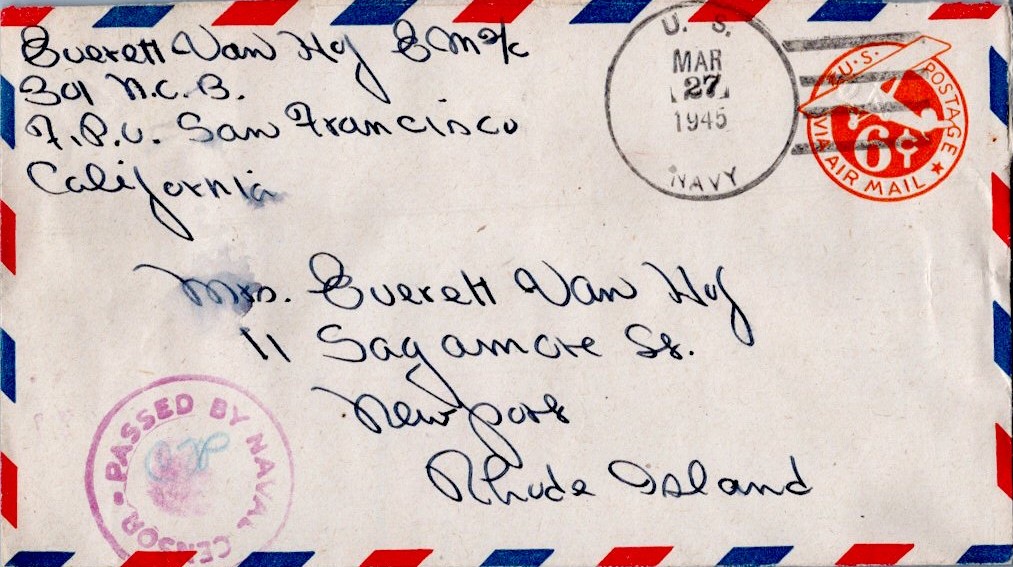 Everett Van Hof EM2/c
301 N.C.B.
F.P.O. San Francisco
California
U. S.
MAR
27
1945
NAVY
U.S. POSTAGE
6¢
VIA AIR MAIL
Mrs. Everett Van Hof
11 Sagamore St.
Newport
Rhode Island
PASSED BY NAVAL CENSOR